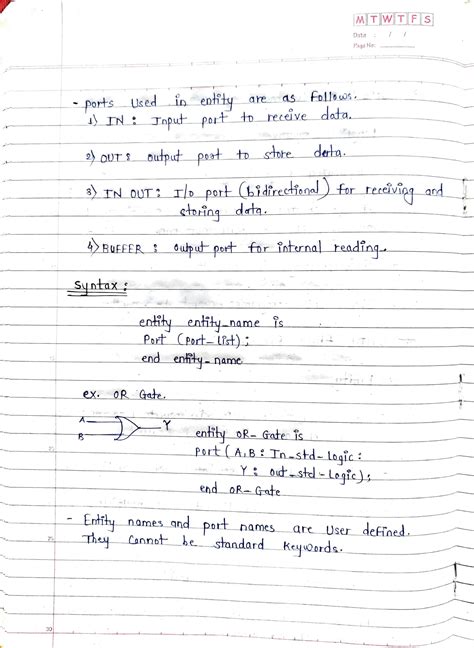 M T W T F S
Date : / /
Page No:
- ports Used in entity are as follows.
1) IN : Input port to receive data.
2) OUT : output port to store data.
3) IN OUT : I/o port (bidirectional) for receiving and
storing data.
4) BUFFER : output port for internal reading.
Syntax :
entity entity_name is
Port (port-list) ;
end entity_name
ex. OR Gate.
A
B
Y
entity OR- Gate is
port ( A,B : In_std-logic :
Y : out_std-Logic) ;
end OR-Gate
- Entity names and port names are User defined.
They Cannot be standard keywords.